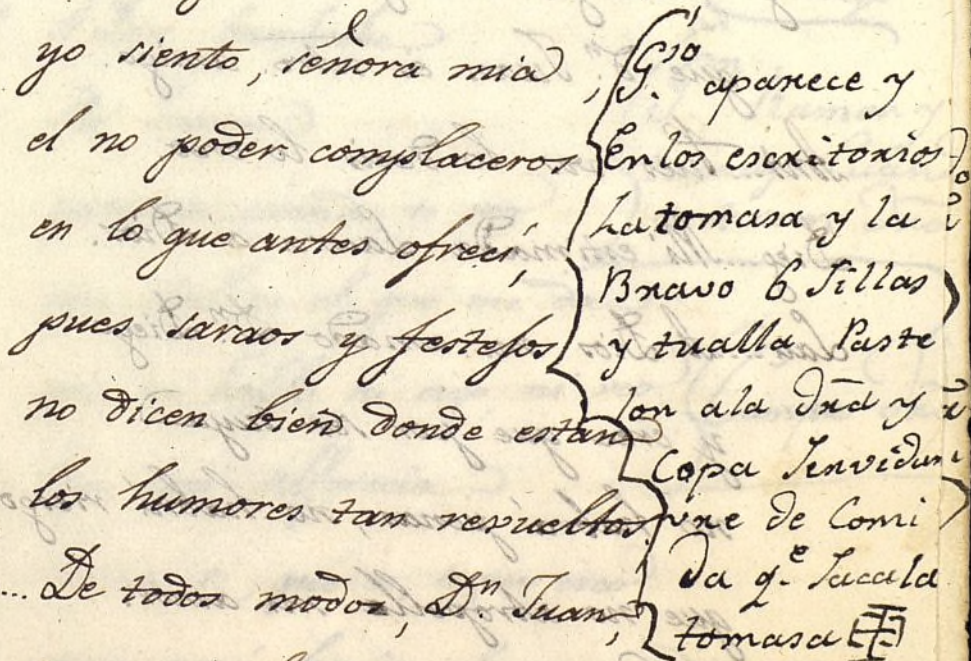 yo siento, señora mia
el no poder complaceros
en lo que antes ofrecí,
pues saraos y festejos
no dicen bien donde estan
los humores tan revueltos.
... De todos modos, Dn. Juan,
aparece y
En los escritorios
La tomasa y la
Bravo 6 Sillas
y tualla Paste
lon ala Dra y
Copa Servidum
vre de Comi
da q.e Saca la
tomasa